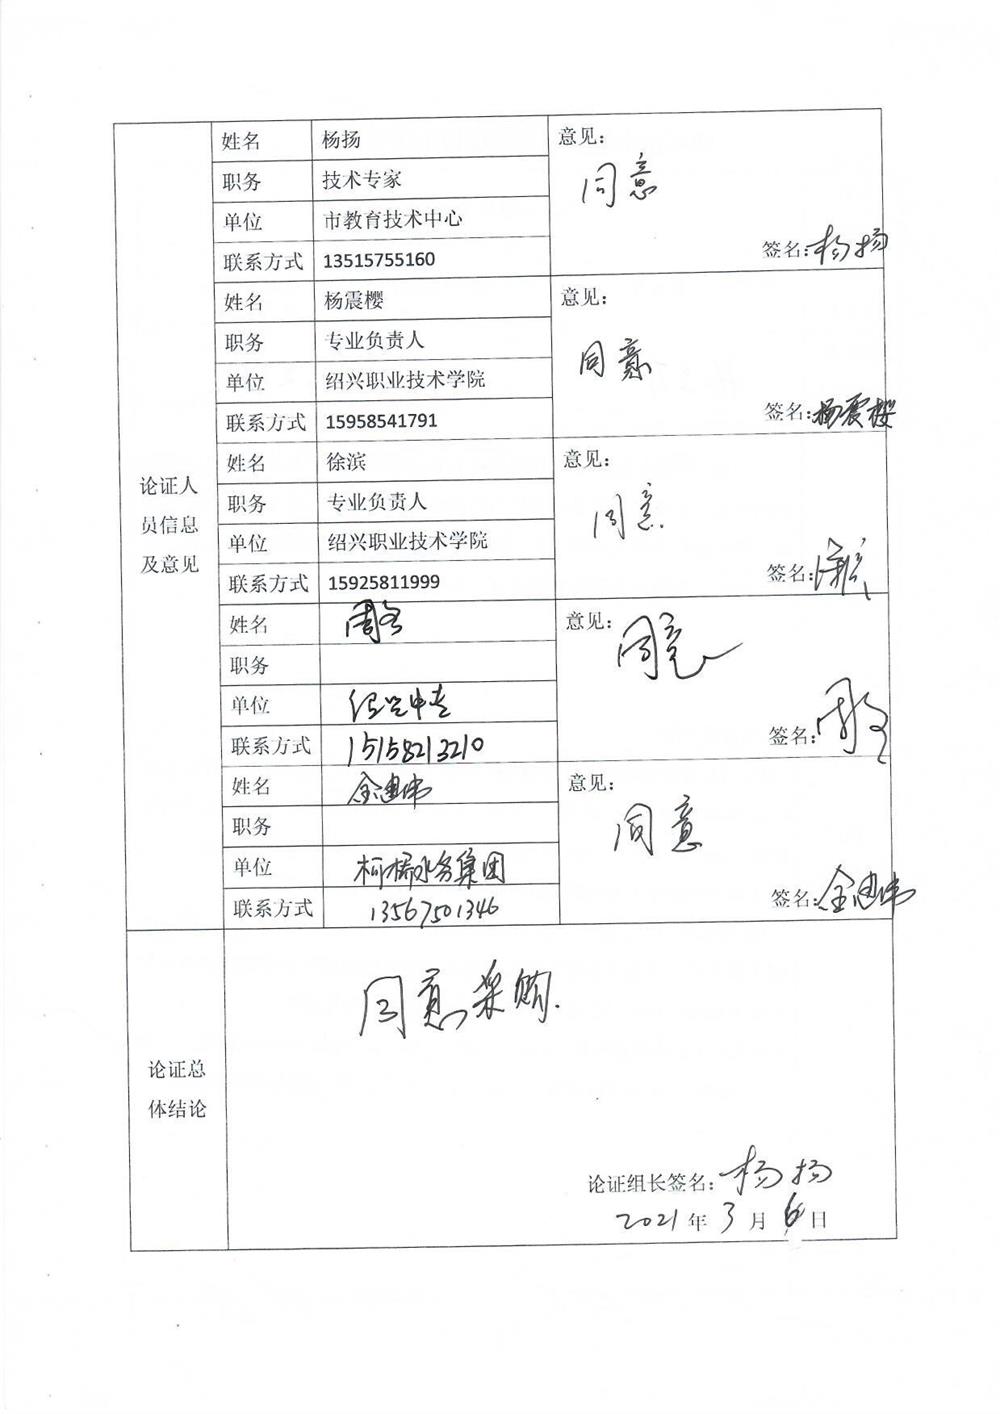 论证人
员信息
及意见
姓名 杨扬
职务 技术专家
单位 市教育技术中心
联系方式 13515755160
意见：
同意
签名：杨扬
姓名 杨震樱
职务 专业负责人
单位 绍兴职业技术学院
联系方式 15958541791
意见：
同意
签名：杨震樱
姓名 徐滨
职务 专业负责人
单位 绍兴职业技术学院
联系方式 15925811999
意见：
同意
签名：
姓名 周
职务
单位 绍兴中专
联系方式 15158213210
意见：
同意
签名：周
姓名 金建伟
职务
单位 柯桥水务集团
联系方式 13567501346
意见：
同意
签名：金建伟
论证总
体结论
同意采购.
论证组长签名：杨扬
2021年3月6日